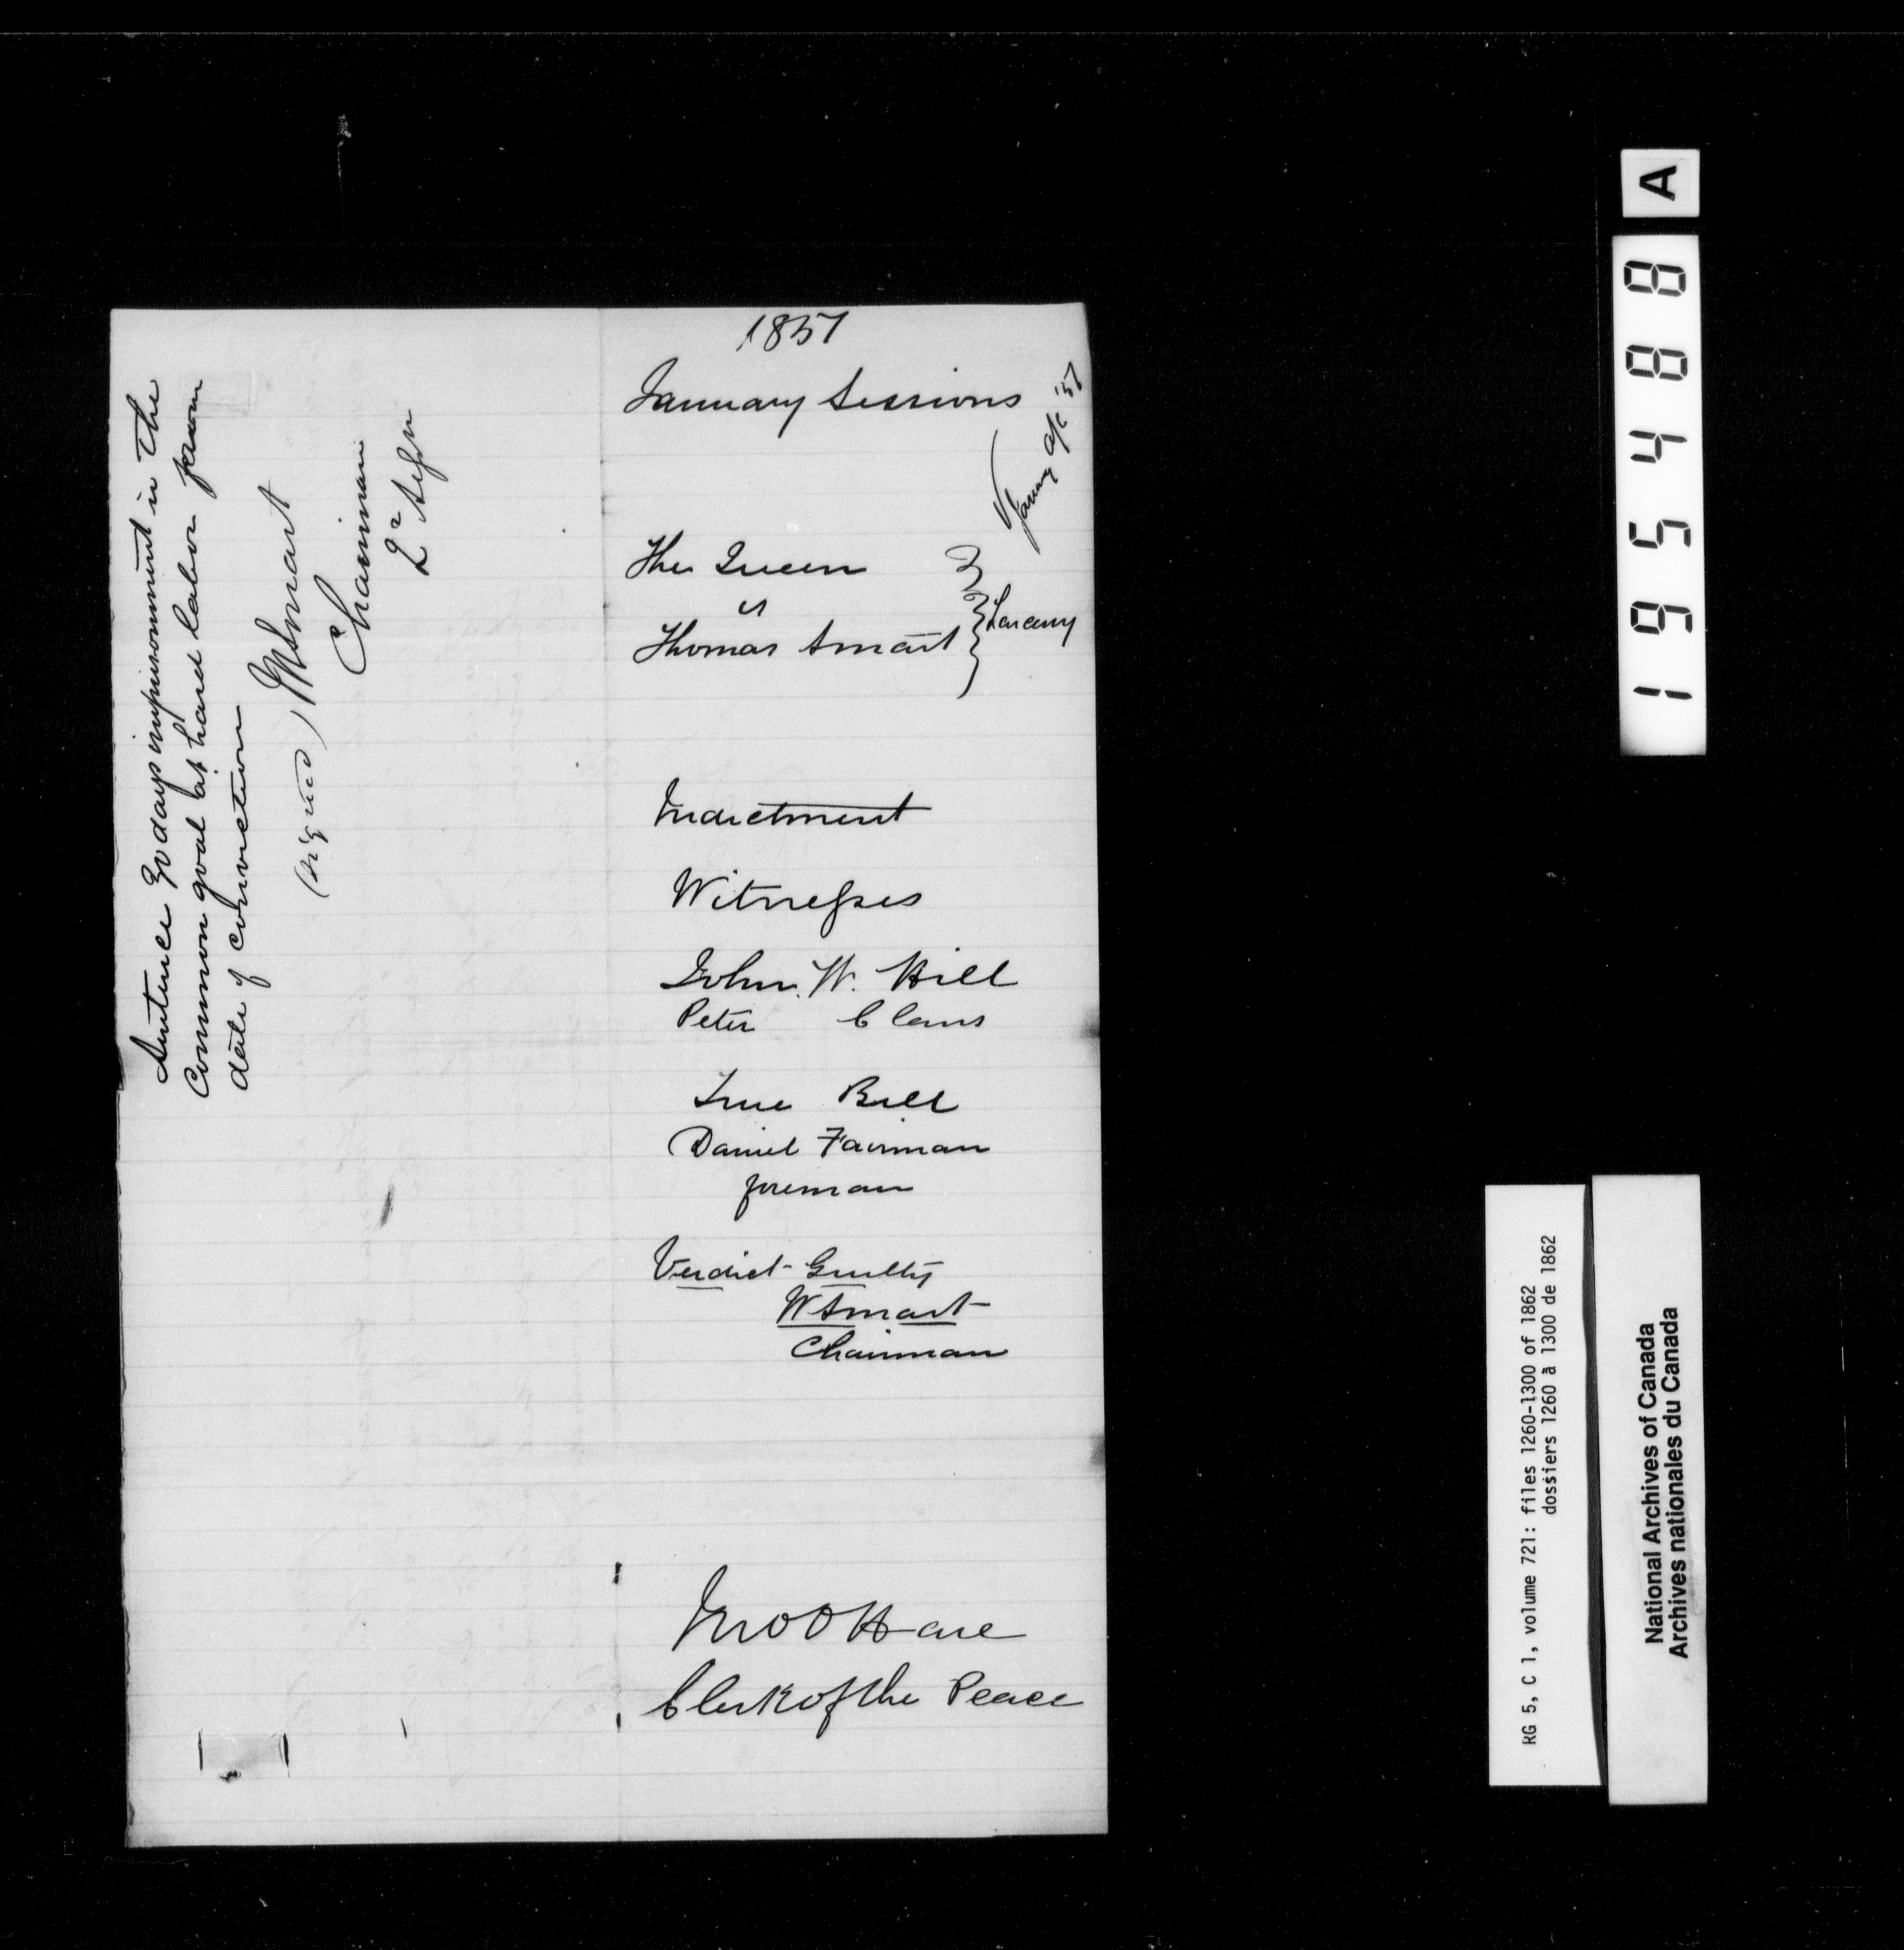 1857
January Sessions
January a/c '57
The Queen
vs
Thomas Smart
Larceny
Indictment
Witnesses
John. W. Hill
Peter Claus
True Bill
Daniel Fairman
foreman
Verdict - Guilty
W Smart
Chairman
Jno O Hare
Clerk of the Peace
Sentence 30 days imprisonment in the
Common goal at hard labor from
date of conviction
(signed) W Smart
Chairman
2
A
195488
RG 5, C 1, volume 721: files 1260-1300 of 1862
dossiers 1260 à 1300 de 1862
National Archives of Canada
Archives nationales du Canada